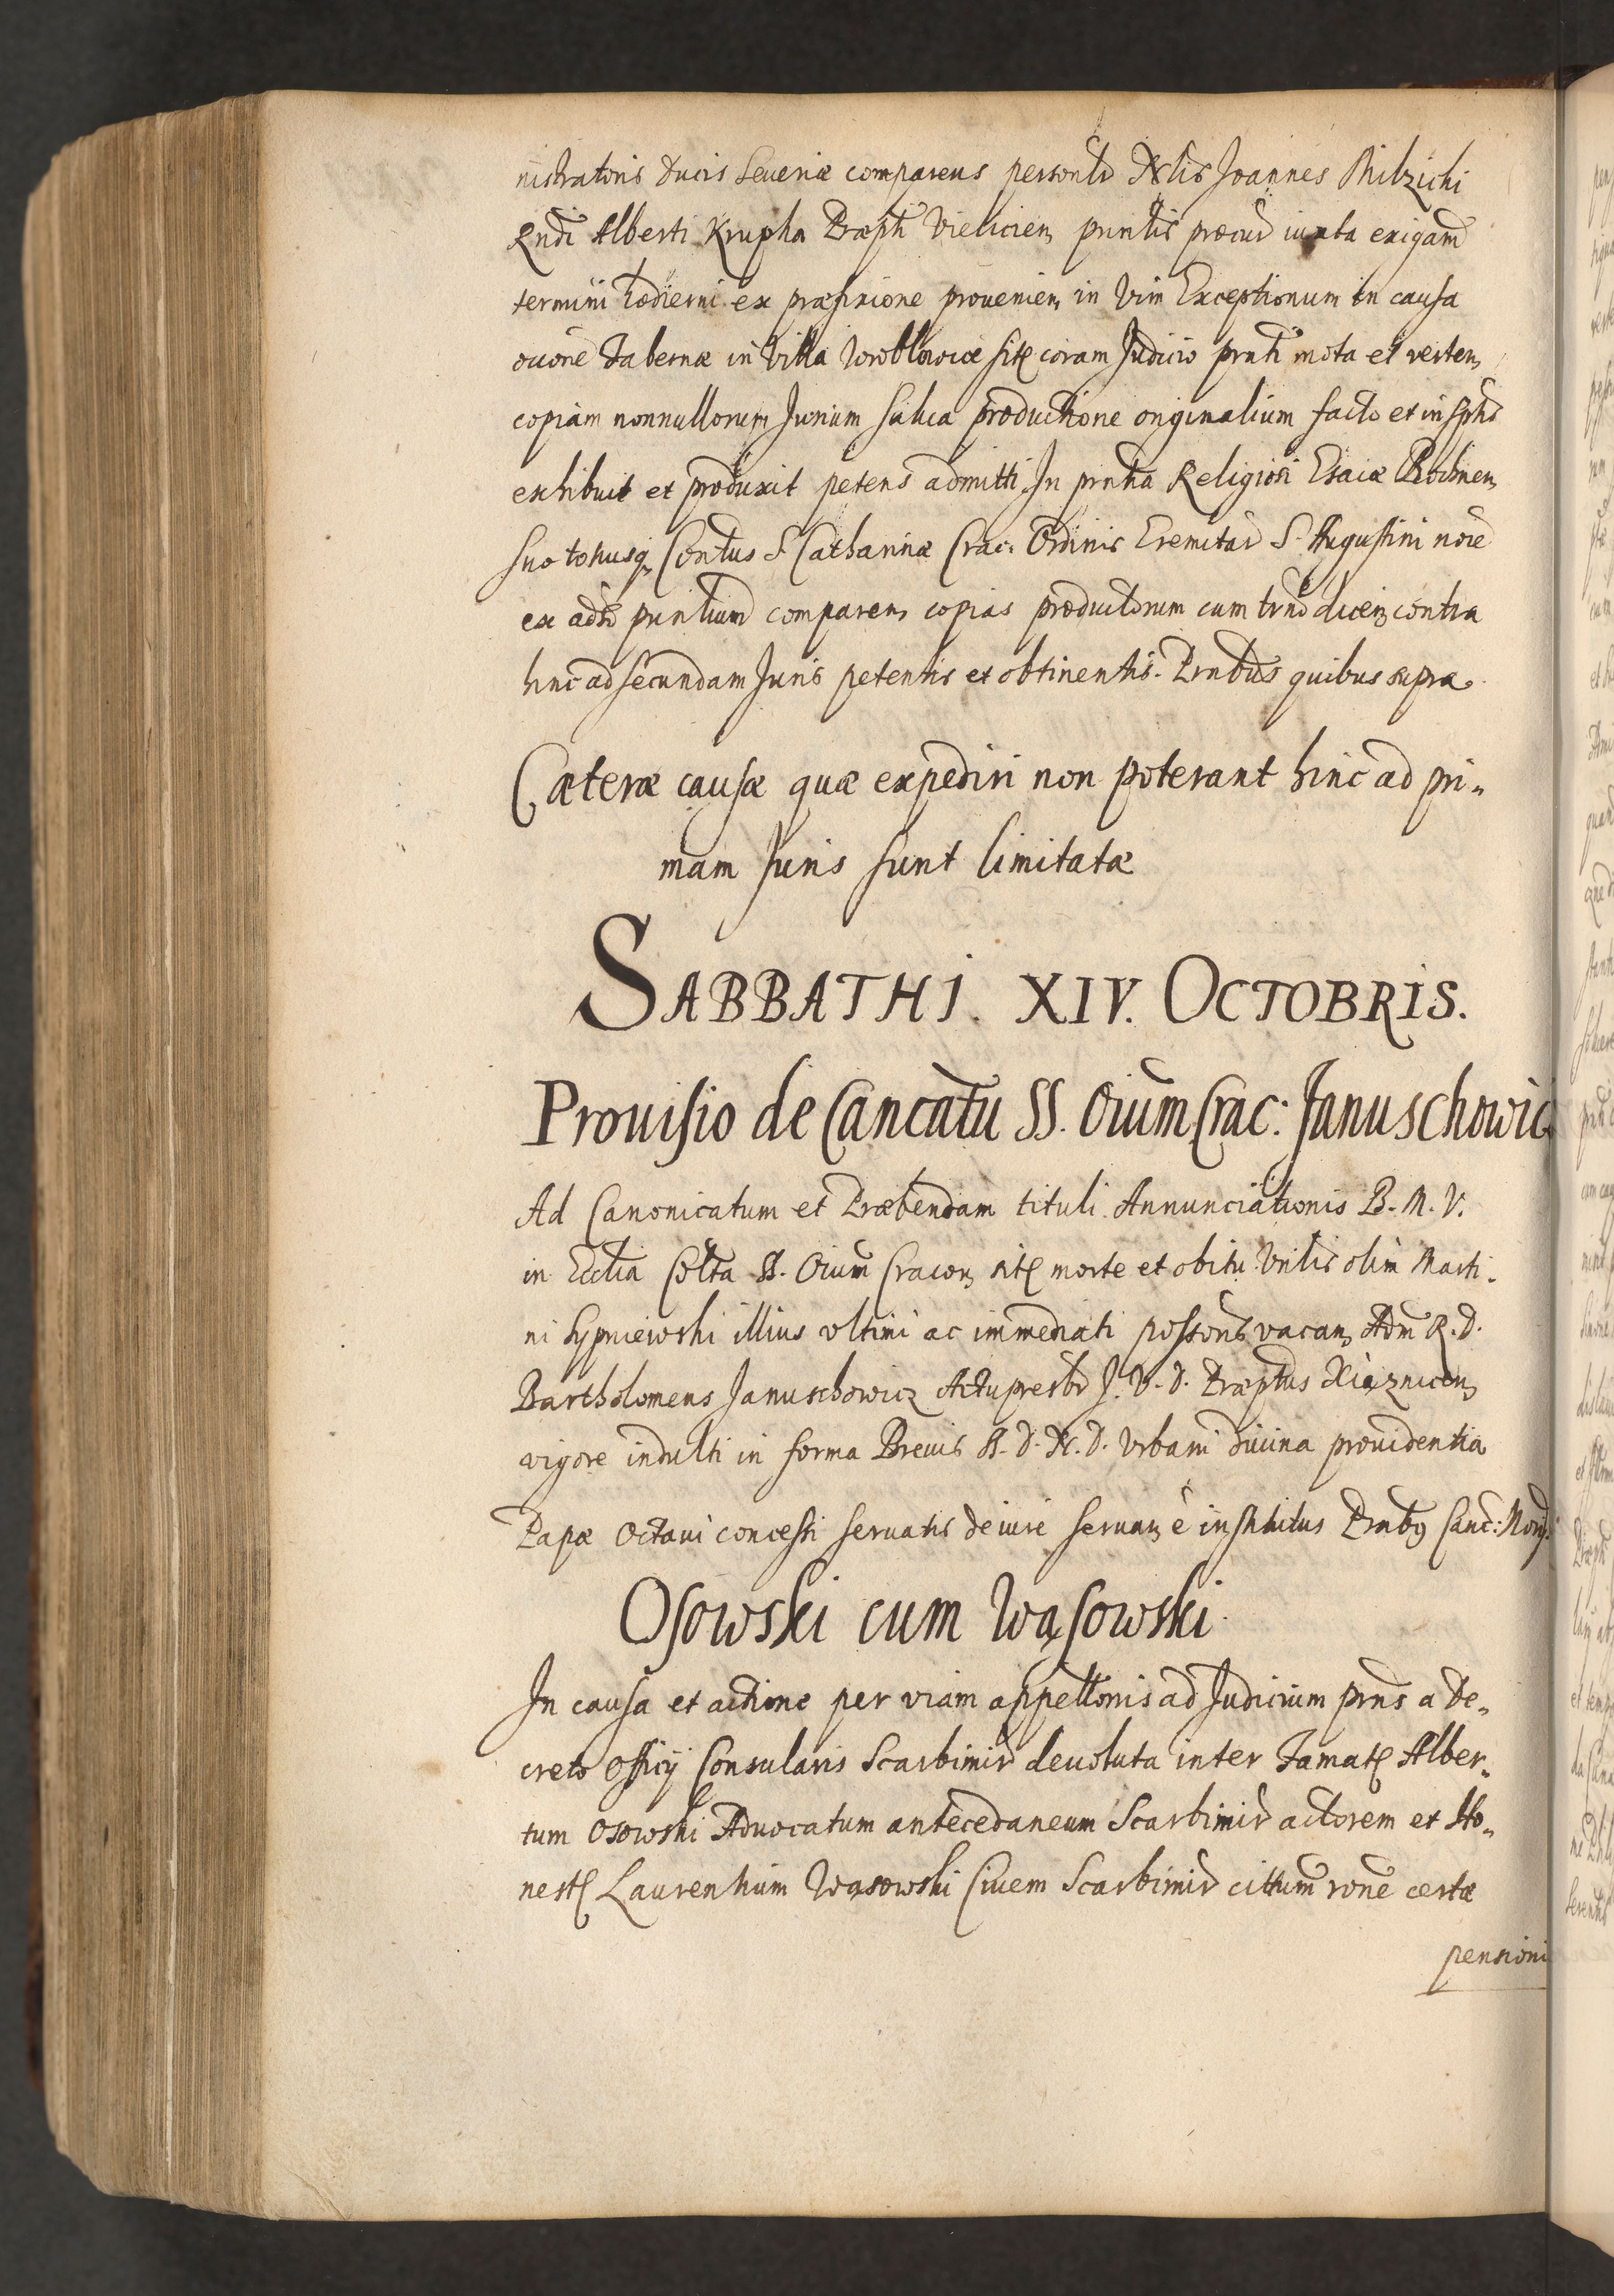 nistratoris Ducis Severiæ comparens personlr Nlis Joannes Philzichi
Rndi Alberti Krupha Præpti Vielicien prinlis procur iuxta exigam
termini hodierni ex præfixione provenien in vim Exceptionum in causa
ōnōne Tabernæ in Villa Wroblowice site coram Judicio prnti mota et verten
copiam nonnullorum Jurium salva productione originalium facto et in scptis
exhibuit et produxit petens admitti. In prntia Religiosi Esaiæ Bochnien
suo totiusq Contus S. Catharinæ Crac: Ordinis Eremitar S. Augustini noie
ex adso prinlium comparen copias productorum cum trno dicen contra
hinc ad secundam Juris petentis et obtinentis. Prntibus quibus supra.
Cæteræ causæ quæ expediri non poterant hinc ad pri-
mam Juris sunt limitatæ
SABBATHI. XIV. OCTOBRIS.
Provisio de Cancatu SS. Oium Crac: Januschowic
Ad Canonicatum et Præbendam tituli Annunciationis B. M. V.
in Ecclia Coltta SS. Oium Cracov site morte et obitu Vnlis olim Marti-
ni Sypniewski illius vltimi ac immediati possoris vacan Adm R. D.
Bartholomeus Januschowicz Actu presbr J. V. D. Præptus Xiąznicen
vigore indulti in forma Brevis SS. D. N. D. Vrbani divina providentia
Papæ Octavi concessi servatis de iure servan è institutus Prntibg Canc: Nory:
Osowski cum Wąsowski.
In causa et actione per viam appellonis ad Judicium prns a De-
creto Officij Consularis Scarbimir devoluta inter Famate Alber-
tum Osowski Advocatum antecedaneum Scarbimir actorem et Ho-
neste Laurentium Wąsowski Civem Scarbimir cittum rone certæ
pensioni